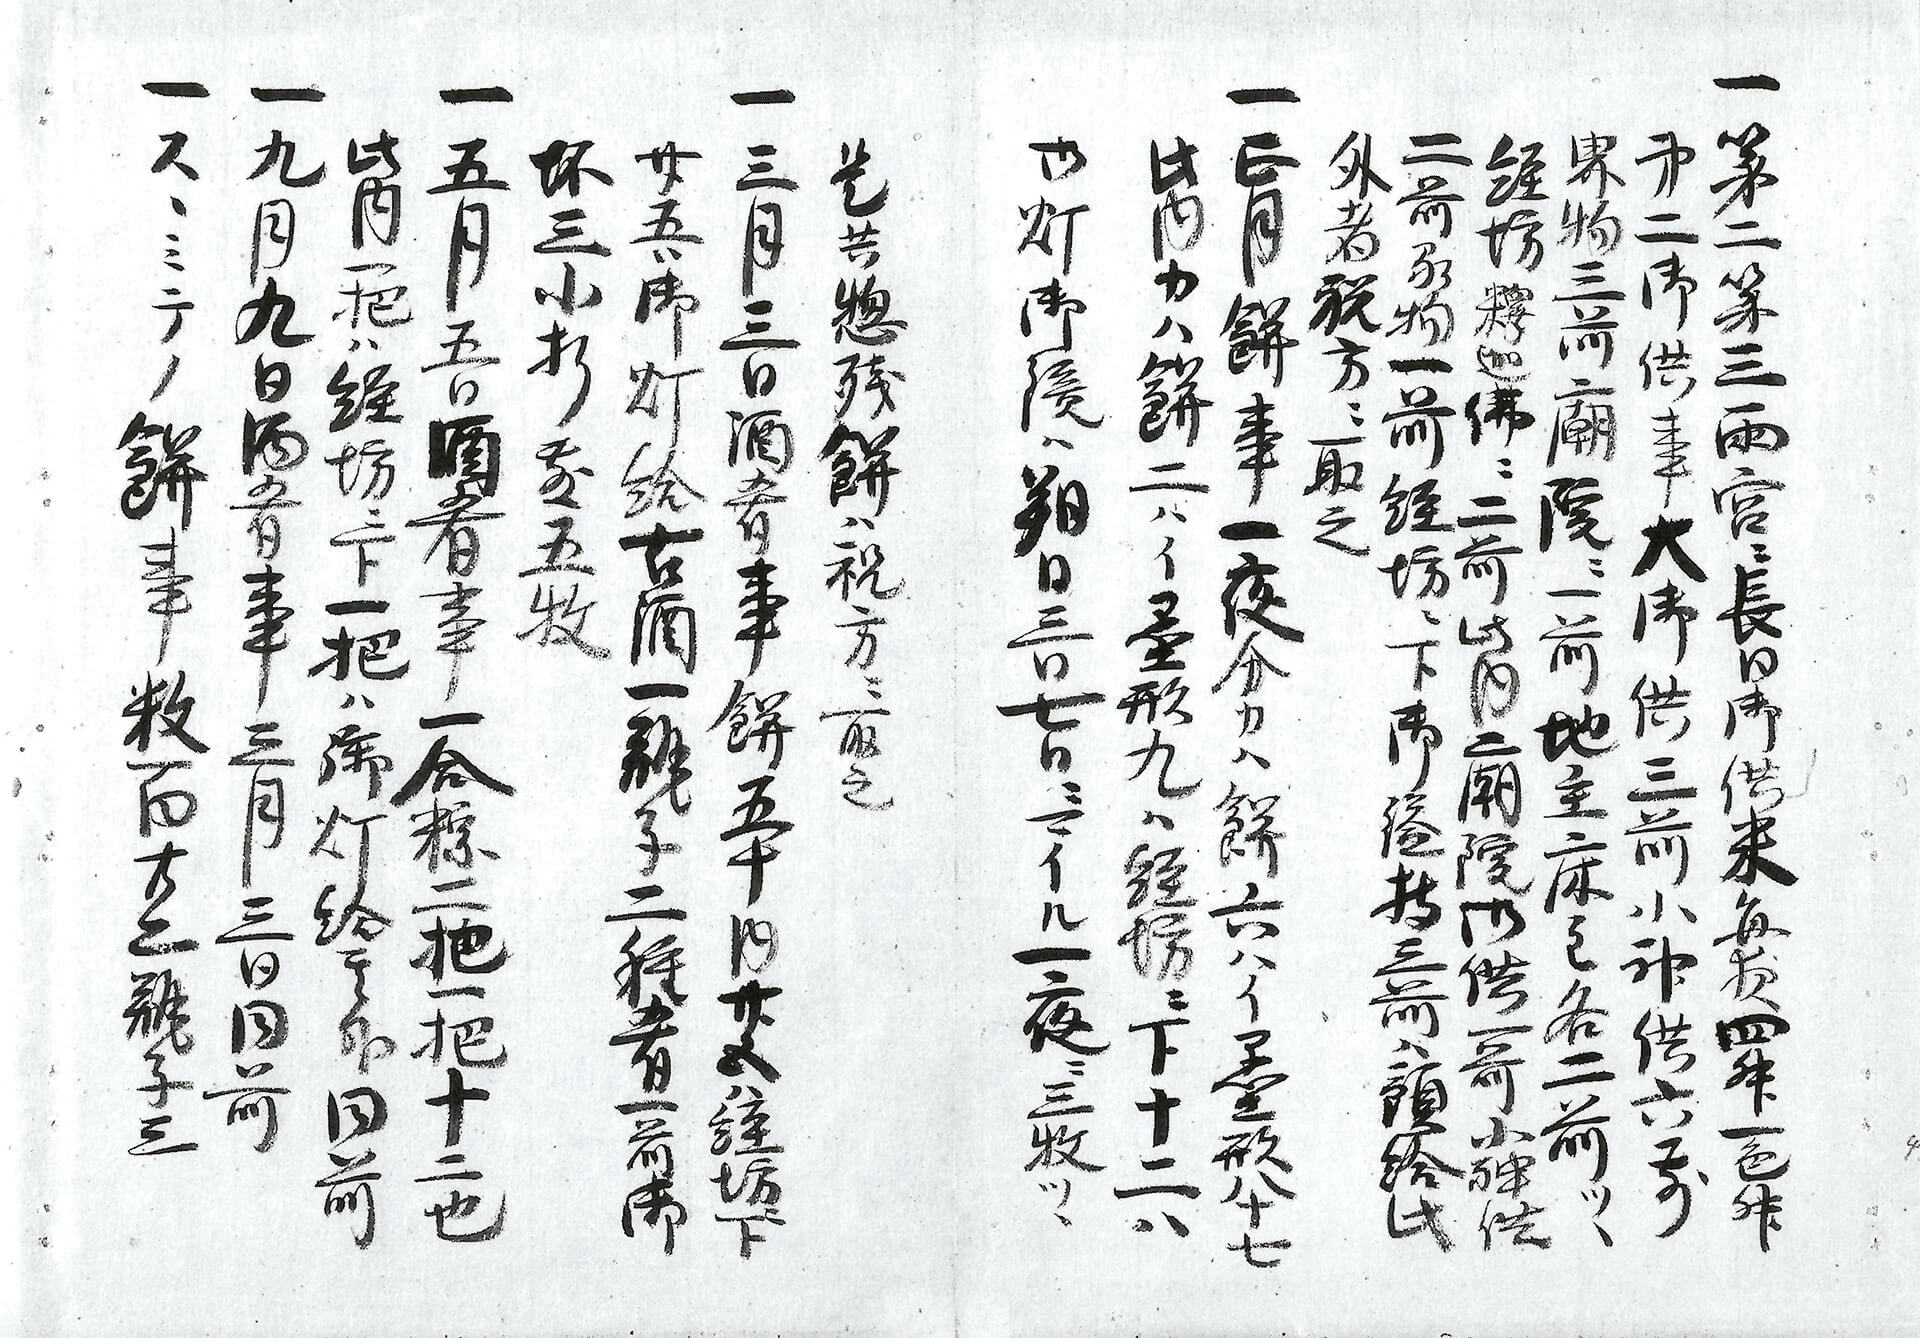 一第二第三両宮ニ長日御供米毎夜四舛一色舛
第二御供事大御供三前小神供六前
界物三前廟院ニ一前地主床ミ各二前ツヽ
経坊釋迦佛ニ二前此内二廟院御供一前小神供
二前界物一前経坊ニ下御 持三前ハ預給此
外者祝方ニ取之
一正月餅事一夜分カハ餅六ハイ星形八十七
此内カハ餅二ハイ星形九ハ経坊ニ下十二ハ
御灯御 ハ朔日三日七日ニ三イル一夜ニ三牧ツヽ
是共惣残餅ハ祝方ニ取之
一三月三日酒肴事餅五十内廿五ハ経坊下
廿五ハ御灯給古酒一瓶子二種肴一前御
坏三小折敷五牧
一五月五日酒肴事一合粽二把一把十二也
此内一把ハ経坊ニ下一把ハ御灯給 同前
一九月九日酒肴事三月三日同前
一スヽミテノ餅事数百廿二瓶子三